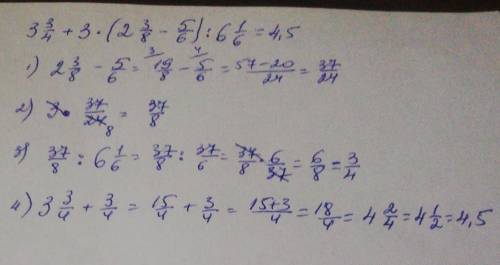 3 3/4 + 3 · (2 3/8 − 5/6) : 6 1/6 = 4,5
1) 2 3/8 − 5/6 = ³19/8 − ⁴5/6 = 57−20/24 = 37/24
2) 3 · 37/24 8 = 37/8
3) 37/8 : 6 1/6 = 37/8 : 37/6 = 37/8 · 6/37 = 6/8 = 3/4
4) 3 3/4 + 3/4 = 15/4 + 3/4 = 15+3/4 = 18/4 = 4 2/4 = 4 1/2 = 4,5